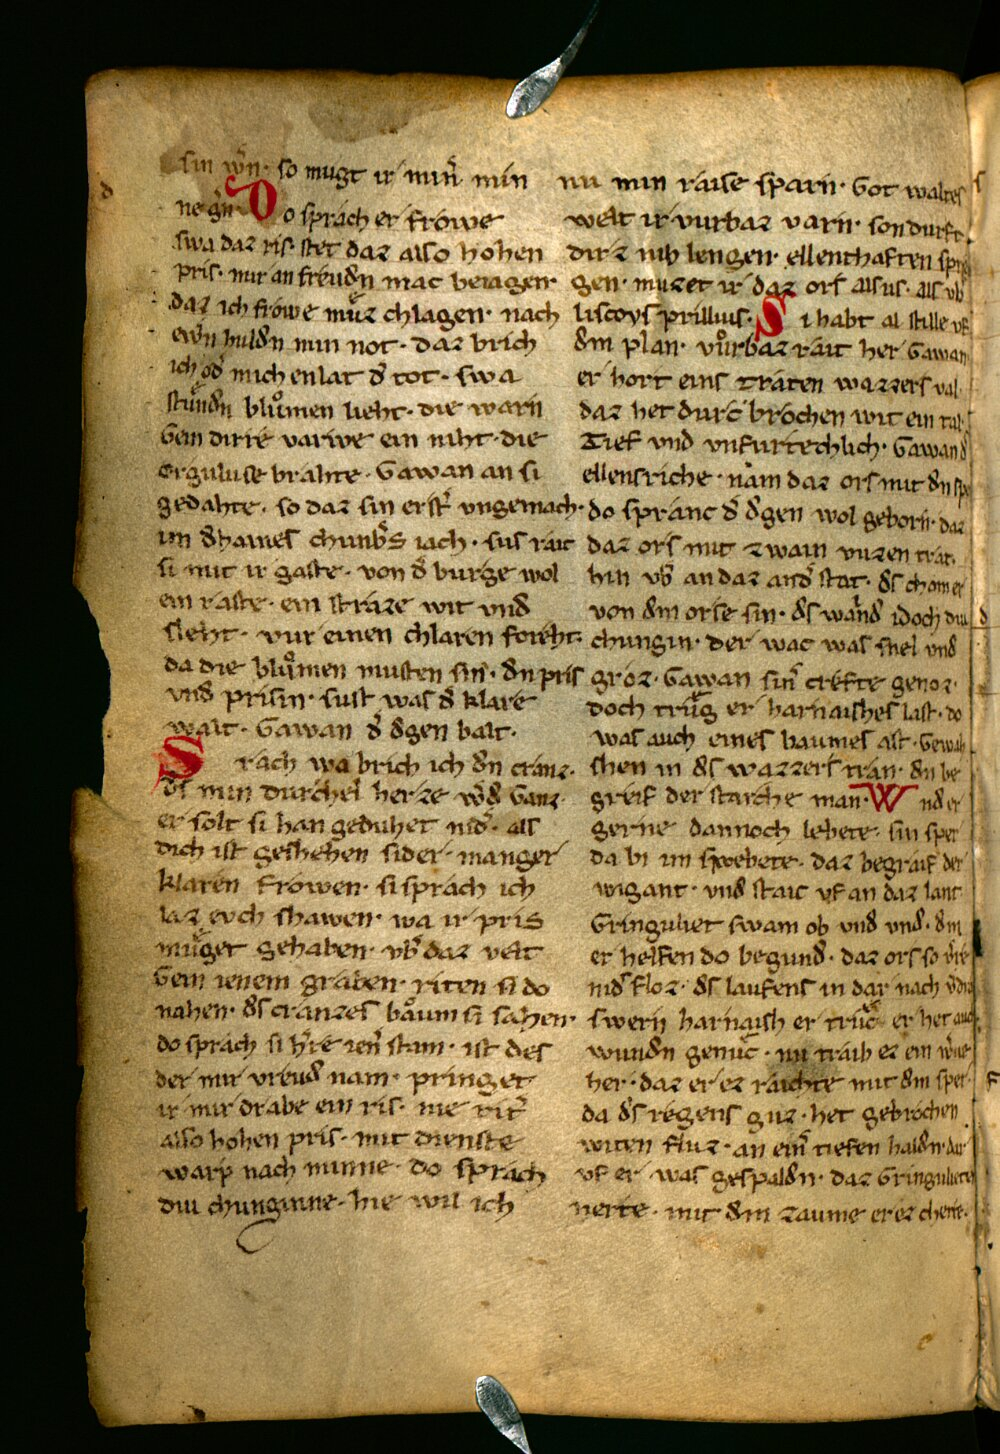 sin w̄n · so mugt ir min̄ · min
ne gn̄ · Do sprach er frowe
swa daz ris · stet daz also hohen
pris · mir an freudn mac beiagen ·
daz ich frowe muͤz chlagen · nach
ewrn huldn min not · daz brich
ich od mich enlat d tot · swa
stuͤndn bluͦmen lieht · die warn
Gein dirre varwe ein niht · die
orguluse brahte · Gawan an si
gedahte · so daz sin erst ungemach ·
im dhaines chunbs iach · sus rait
si mit ir gaste · von d burge wol
ein raste · ein straze wit und
sleht · vur einen chlaren foreht ·
da die bluͦmen musten sin · dn pris
und prisin · sust was d klare
walt · Gawan d dgen balt ·
Srach wa brich ich dn cranz ·
ds min durchel herze wd Ganz ·
er solt si han geduhet nid · als
dich ist geshehen sider · manger
klaren frowen · si sprach ich
laz evch shawen · wa ir pris
muͤget gehaben · vb daz velt
Gein ienem graben · riten si do
nahen · ds cranzes baͦum si sahen ·
do sprach si hre ien stam · ist des
der mir vreud nam · pringet
ir mir drabe ein ris · nie rit
also hohen pris · mit dienste
warp nach minne · do sprach
diu chuneginne · hie wil ich
nu min raise sparn · Got waltes
welt ir vurbaz varn · son durft
dirz niht lengen · ellenthaften spren
gen · muzet ir daz ors alsus · als vb
liscoys prillius · Si habt al stille vf
dm plan · vuͦrbaz rait her Gawan
er hort eins traten wazzers val
daz het durc brochen wit ein tal ·
Tief vnd vnfurtechlich · Gawan d
ellensriche · nam daz ors mit dn spo
do spranc d dgen wol geborn · daz
daz ors mit zwain vuzen trat ·
hin vb an daz and stat · ds chom er
von dm orse sin · ds wand idoch diu
chungin · der wac was snel und
groz · Gawan sin crefte genoz ·
doch truͤg er harnaishes last · do
was auch eines baumes ast · Gewah
shen in ds wazzers tran · dn be
greif der starche man · Wnd er
gerne dannoch lebete · sin sper
da bi im swebete · daz begraif der
wigant · und staic vf an daz lant
Gringuliet swam ob und und · dm
er helfen do begund · daz ors so
nid floz · ds laufens in dar nach
swern harnaish er truͤc er het auch
wundn genuͤc · nu traib ez ein w
her · daz er ez raichte mit dm sper ·
da ds regens guz · het gebrochen
witen fluz · an ein tiefen haldn · dar
vf er was gespaldn · daz Gringuliete
nerte · mit dm zaume er ez cherte ·